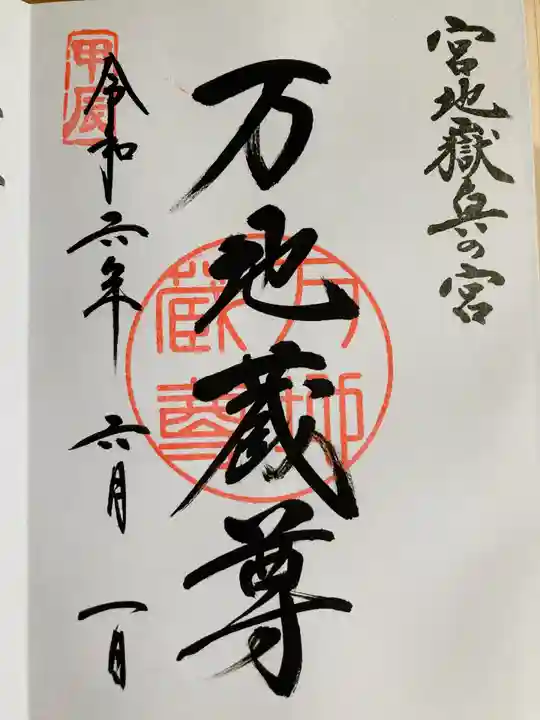 宮地嶽奥の宮
万地蔵尊
万地蔵尊
令和六年 六月 一日
甲辰